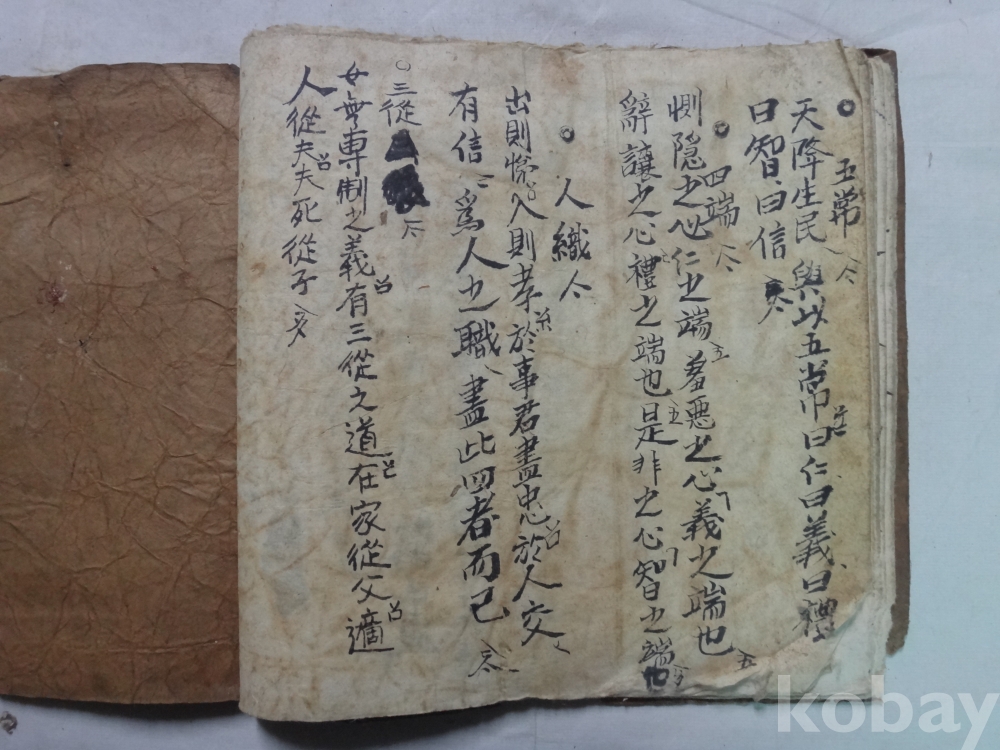 五常
天降生民與以五常曰仁曰義曰禮
曰智曰信
四端
惻隱之心仁之端羞惡之心義之端也
辭讓之心禮之端也是非之心智之端也
人織
出則悌入則孝於事君盡忠於人交
有信爲人之職盡此四者而已
三從
女無專制之義有三從之道在家從父適
人從夫夫死從子
kobay